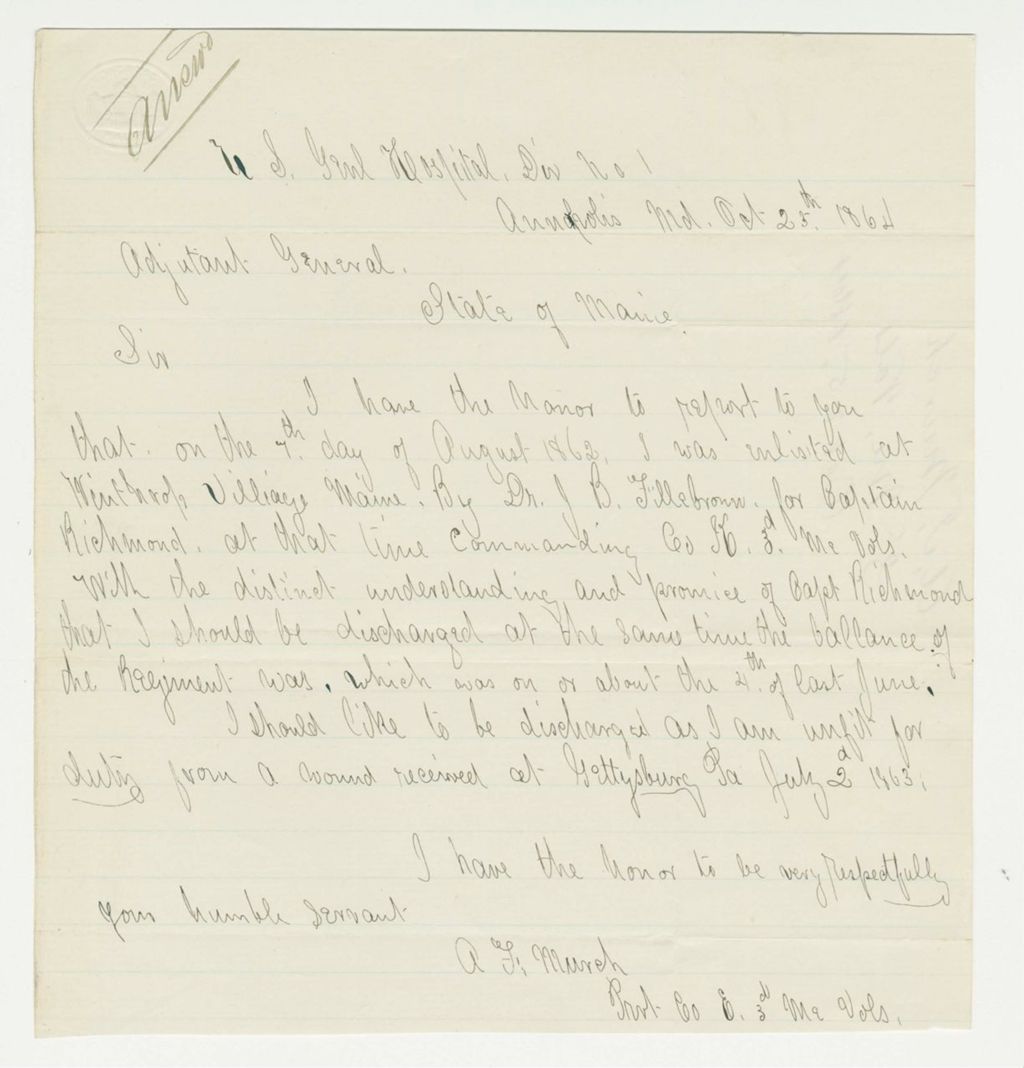 Answd
U S. Genl Hospital. Div No 1
Annapolis Md. Oct 25th. 1864
Adjutant General.
State of Maine.
Sir
I have the honor to report to you
that. on the 7th. day of August 1862, I was enlisted at
Winthrop Villiage Maine. By Dr. J B. Fillebrown. for Captain
Richmond. at that time Commanding Co K. 3d. Me Vols.
With the distinct understanding and promice of Capt Richmond
that I should be discharged at the same time the ballance of
the Regiment was. which was on or about the 4th. of last June.
I should like to be discharged as I am unfit for
duty from a wound received at Gettysburg Pa July 2d 1863.
I have the honor to be very respectfully
your humble servant
A F. Murch
Privt Co E. 3d Me Vols.